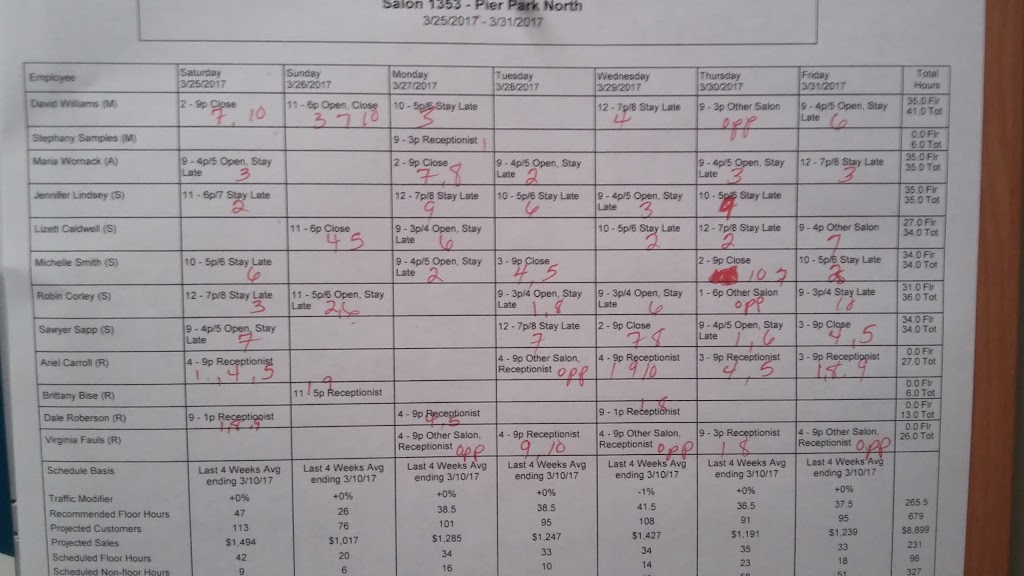 Salon 1353 - Pier Park North
3/25/2017 - 3/31/2017
Employee Saturday 3/25/2017 Sunday 3/26/2017 Monday 3/27/2017 Tuesday 3/28/2017 Wednesday 3/29/2017 Thursday 3/30/2017 Friday 3/31/2017 Total Hours
David Williams (M) 2 - 9p Close 7, 10 11 - 6p Open, Close 3 7 10 10 - 5p/6 Stay Late 3 12 - 7p/8 Stay Late 4 9 - 3p Other Salon opp 9 - 4p/5 Open, Stay Late 6 35.0 Flr 41.0 Tot
Stephany Samples (M) 9 - 3p Receptionist 1 0.0 Flr 6.0 Tot
Maria Womack (A) 9 - 4p/5 Open, Stay Late 3 2 - 9p Close 7, 8 9 - 4p/5 Open, Stay Late 2 9 - 4p/5 Open, Stay Late 3 12 - 7p/8 Stay Late 3 35.0 Flr 35.0 Tot
Jennifer Lindsey (S) 11 - 6p/7 Stay Late 2 12 - 7p/8 Stay Late 9 10 - 5p/6 Stay Late 6 9 - 4p/5 Open, Stay Late 3 10 - 5p/6 Stay Late 9 35.0 Flr 35.0 Tot
Lizett Caldwell (S) 11 - 6p Close 4 5 9 - 3p/4 Open, Stay Late 6 10 - 5p/6 Stay Late 2 12 - 7p/8 Stay Late 2 9 - 4p Other Salon 7 27.0 Flr 34.0 Tot
Michelle Smith (S) 10 - 5p/6 Stay Late 6 9 - 4p/5 Open, Stay Late 2 3 - 9p Close 4, 5 2 - 9p Close 10 7 10 - 5p/6 Stay Late 34.0 Flr 34.0 Tot
Robin Corley (S) 12 - 7p/8 Stay Late 3 11 - 5p/6 Open, Stay Late 26 9 - 3p/4 Open, Stay Late 1, 8 9 - 3p/4 Open, Stay Late 6 1 - 6p Other Salon opp 9 - 3p/4 Stay Late 31.0 Flr 36.0 Tot
Sawyer Sapp (S) 9 - 4p/5 Open, Stay Late 7 12 - 7p/8 Stay Late 7 2 - 9p Close 78 9 - 4p/5 Open, Stay Late 1, 6 3 - 9p Close 4, 5 34.0 Flr 34.0 Tot
Ariel Carroll (R) 4 - 9p Receptionist 1, 4, 5 4 - 9p Other Salon, Receptionist opp 4 - 9p Receptionist 1 9 10 3 - 9p Receptionist 4, 5 3 - 9p Receptionist 1, 8, 9 0.0 Flr 27.0 Tot
Brittany Bise (R) 1, 9 11 - 5p Receptionist 0.0 Flr 6.0 Tot
Dale Roberson (R) 9 - 1p Receptionist 4 - 9p Receptionist 4, 5 9 - 1p Receptionist 1, 8 0.0 Flr 13.0 Tot
Virginia Fauls (R) 4 - 9p Other Salon, Receptionist opp 4 - 9p Receptionist 9, 10 4 - 9p Other Salon, Receptionist opp 9 - 3p Receptionist 1 8 4 - 9p Other Salon, Receptionist opp 0.0 Flr 26.0 Tot
Schedule Basis Last 4 Weeks Avg ending 3/10/17 Last 4 Weeks Avg ending 3/10/17 Last 4 Weeks Avg ending 3/10/17 Last 4 Weeks Avg ending 3/10/17 Last 4 Weeks Avg ending 3/10/17 Last 4 Weeks Avg ending 3/10/17 Last 4 Weeks Avg ending 3/10/17
Traffic Modifier +0% +0% +0% +0% -1% +0% +0%
Recommended Floor Hours 47 26 38.5 38.5 41.5 36.5 37.5 265.5
Projected Customers 113 76 101 95 108 91 95 679
Projected Sales $1,494 $1,017 $1,285 $1,247 $1,427 $1,191 $1,239 $8,899
Scheduled Floor Hours 42 20 34 33 34 35 33 231
Scheduled Non-floor Hours 9 6 16 10 14 23 18 96
51 327